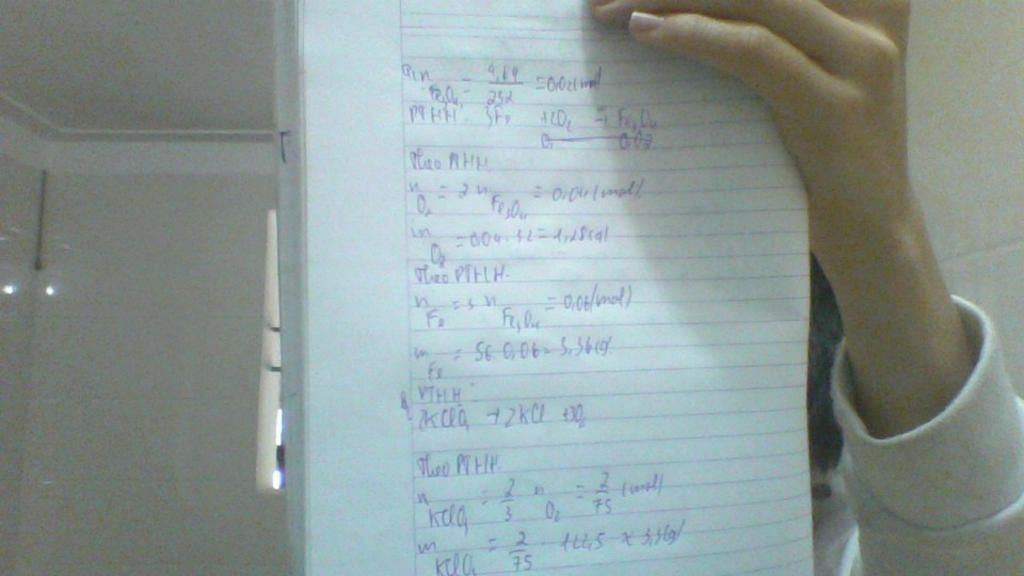 a, n Fe3O4 = 4,64 / 232 = 0,02 (mol)
PTHH: 3Fe + 2O2 → Fe3O4
Theo PTHH.
n O2 = 2 n Fe3O4 = 0,04 (mol)
m O2 = 0,04 . 32 = 1,28 (g)
Theo PTHH.
n Fe = 3 n Fe3O4 = 0,06 (mol)
m Fe = 56 . 0,06 = 3,36 (g).
b, PTHH
2KClO3 → 2KCl + 3O2
Theo PTHH.
n KClO3 = 2/3 n O2 = 2/75 (mol)
m KClO3 = 2/75 . 122,5 × 3,3 (g)